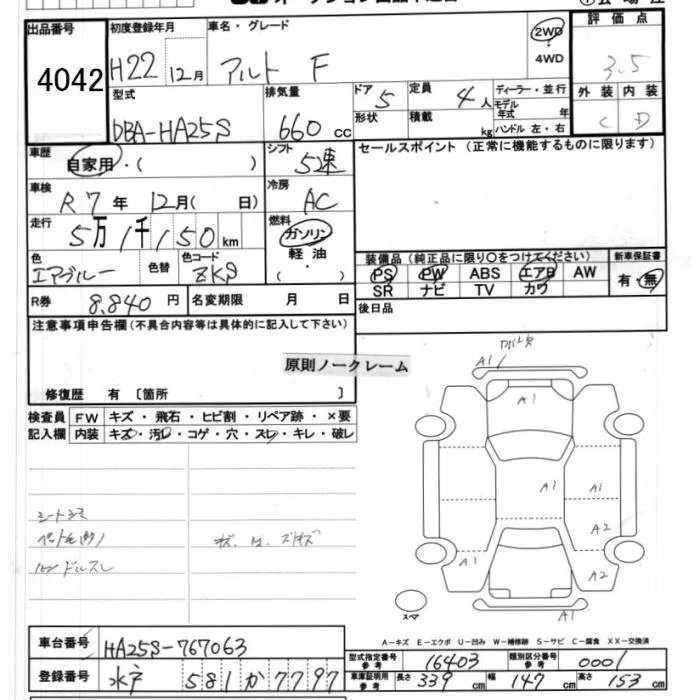 出品番号 初度登録年月 車名・グレード 2WD 評価点
4042 H22 12月 アルト F 4WD 3.5
型式 排気量 ドア 5 定員 4人 ディーラー・並行 外装 内装
DBA-HA25S 660 cc 形状 積載 kg モデル年式 年 C D
ハンドル 左・右
車歴 自家用・( ) シフト 5速 セールスポイント(正常に機能するものに限ります)
車検 R7年 12月( 日) 冷房 AC
走行 5万1千150km 燃料 ガソリン 軽油 ( ・ )
色 エアブルー 色替 色コード ZKS 装備品(純正品に限り○をつけてください) 新車保証書
PS PW ABS エアB AW 有・無
SR ナビ TV カワ
R券 8,840円 名変期限 月 日 後日品
注意事項申告欄(不具合内容等は具体的に記入して下さい)
原則ノークレーム
A1
A1
修復歴 有 〔箇所 〕
検査員 FW キズ・飛石・ヒビ割・リペア跡・×要
記入欄 内装 キズ・汚レ・コゲ・穴・スレ・キレ・破レ
A1 A1
A2
シートシミ
A1 A2
ハンドルスレ
スペア A1
車台番号 HA25S-767063
A-キズ E-エクボ U-凹み W-補修跡 S-サビ C-腐食 XX-交換済
登録番号 水戸 581 か 7797
型式指定番号参考 16403 類別区分番号参考 0001
車庫証明用参考 長さ 339cm 幅 147cm 高さ 153cm